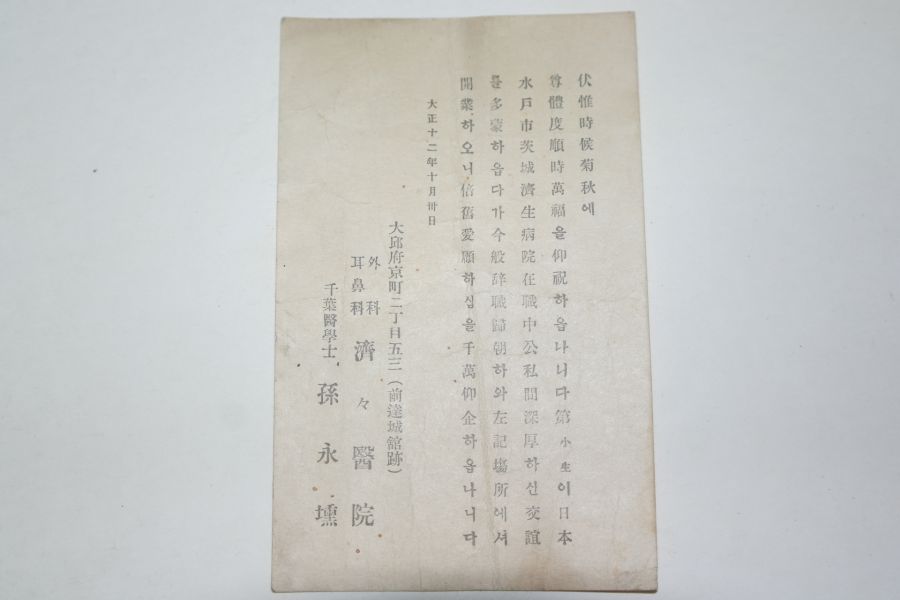 伏惟時候菊秋에
尊體度順時萬福을仰祝하옵나니다第小生이日本
水戶市茨城濟生病院在職中公私間深厚하신交誼
를多蒙하옵다가今般辞職歸朝하와左記塲所에셔
開業하오니倍舊愛願하심을千萬仰企하옵나니다
大正十二年十月卅日
大邱府京町二丁目五三(前達城舘跡)
外科
耳鼻科
濟々醫院
千葉醫學士 孫永壎